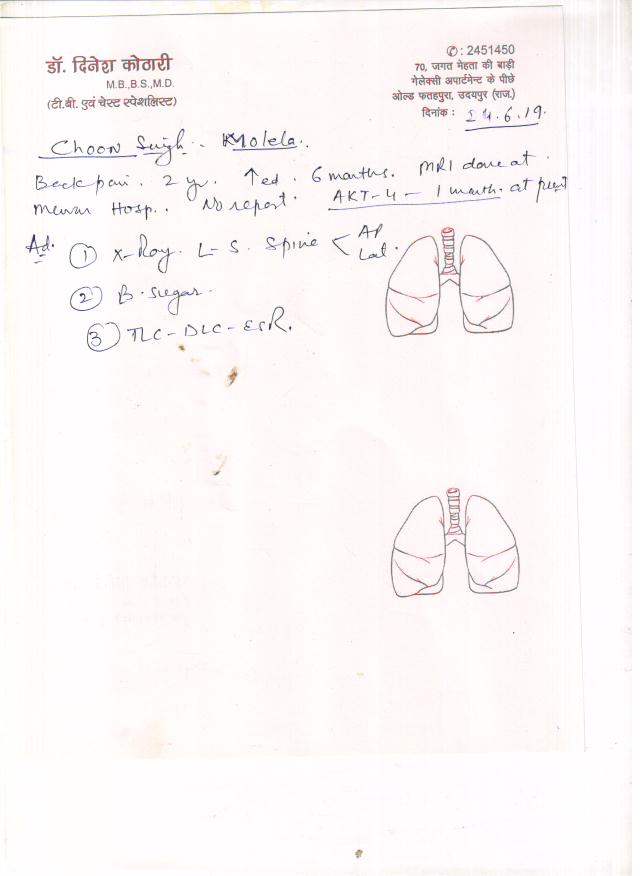 डॉ. दिनेश कोठारी
M.B.,B.S.,M.D.
(टी.बी. एवं चेस्ट स्पेशलिस्ट)
✆ : 2451450
70, जगत मेहता की बाड़ी
गेलेक्सी अपार्टमेन्ट के पीछे
ओल्ड फतहपुरा, उदयपुर (राज.)
दिनांक : 24.6.19.
Choon Singh. Molela.
Back pain. 2 yr. ↑ed. 6 months. MRI done at.
Mewar Hosp.. No report. AKT-4 - 1 month. at present
Ad. ① X-Ray. L-S. Spine < AP
Lat.
② B. sugar.
③ TLC - DLC - ESR.